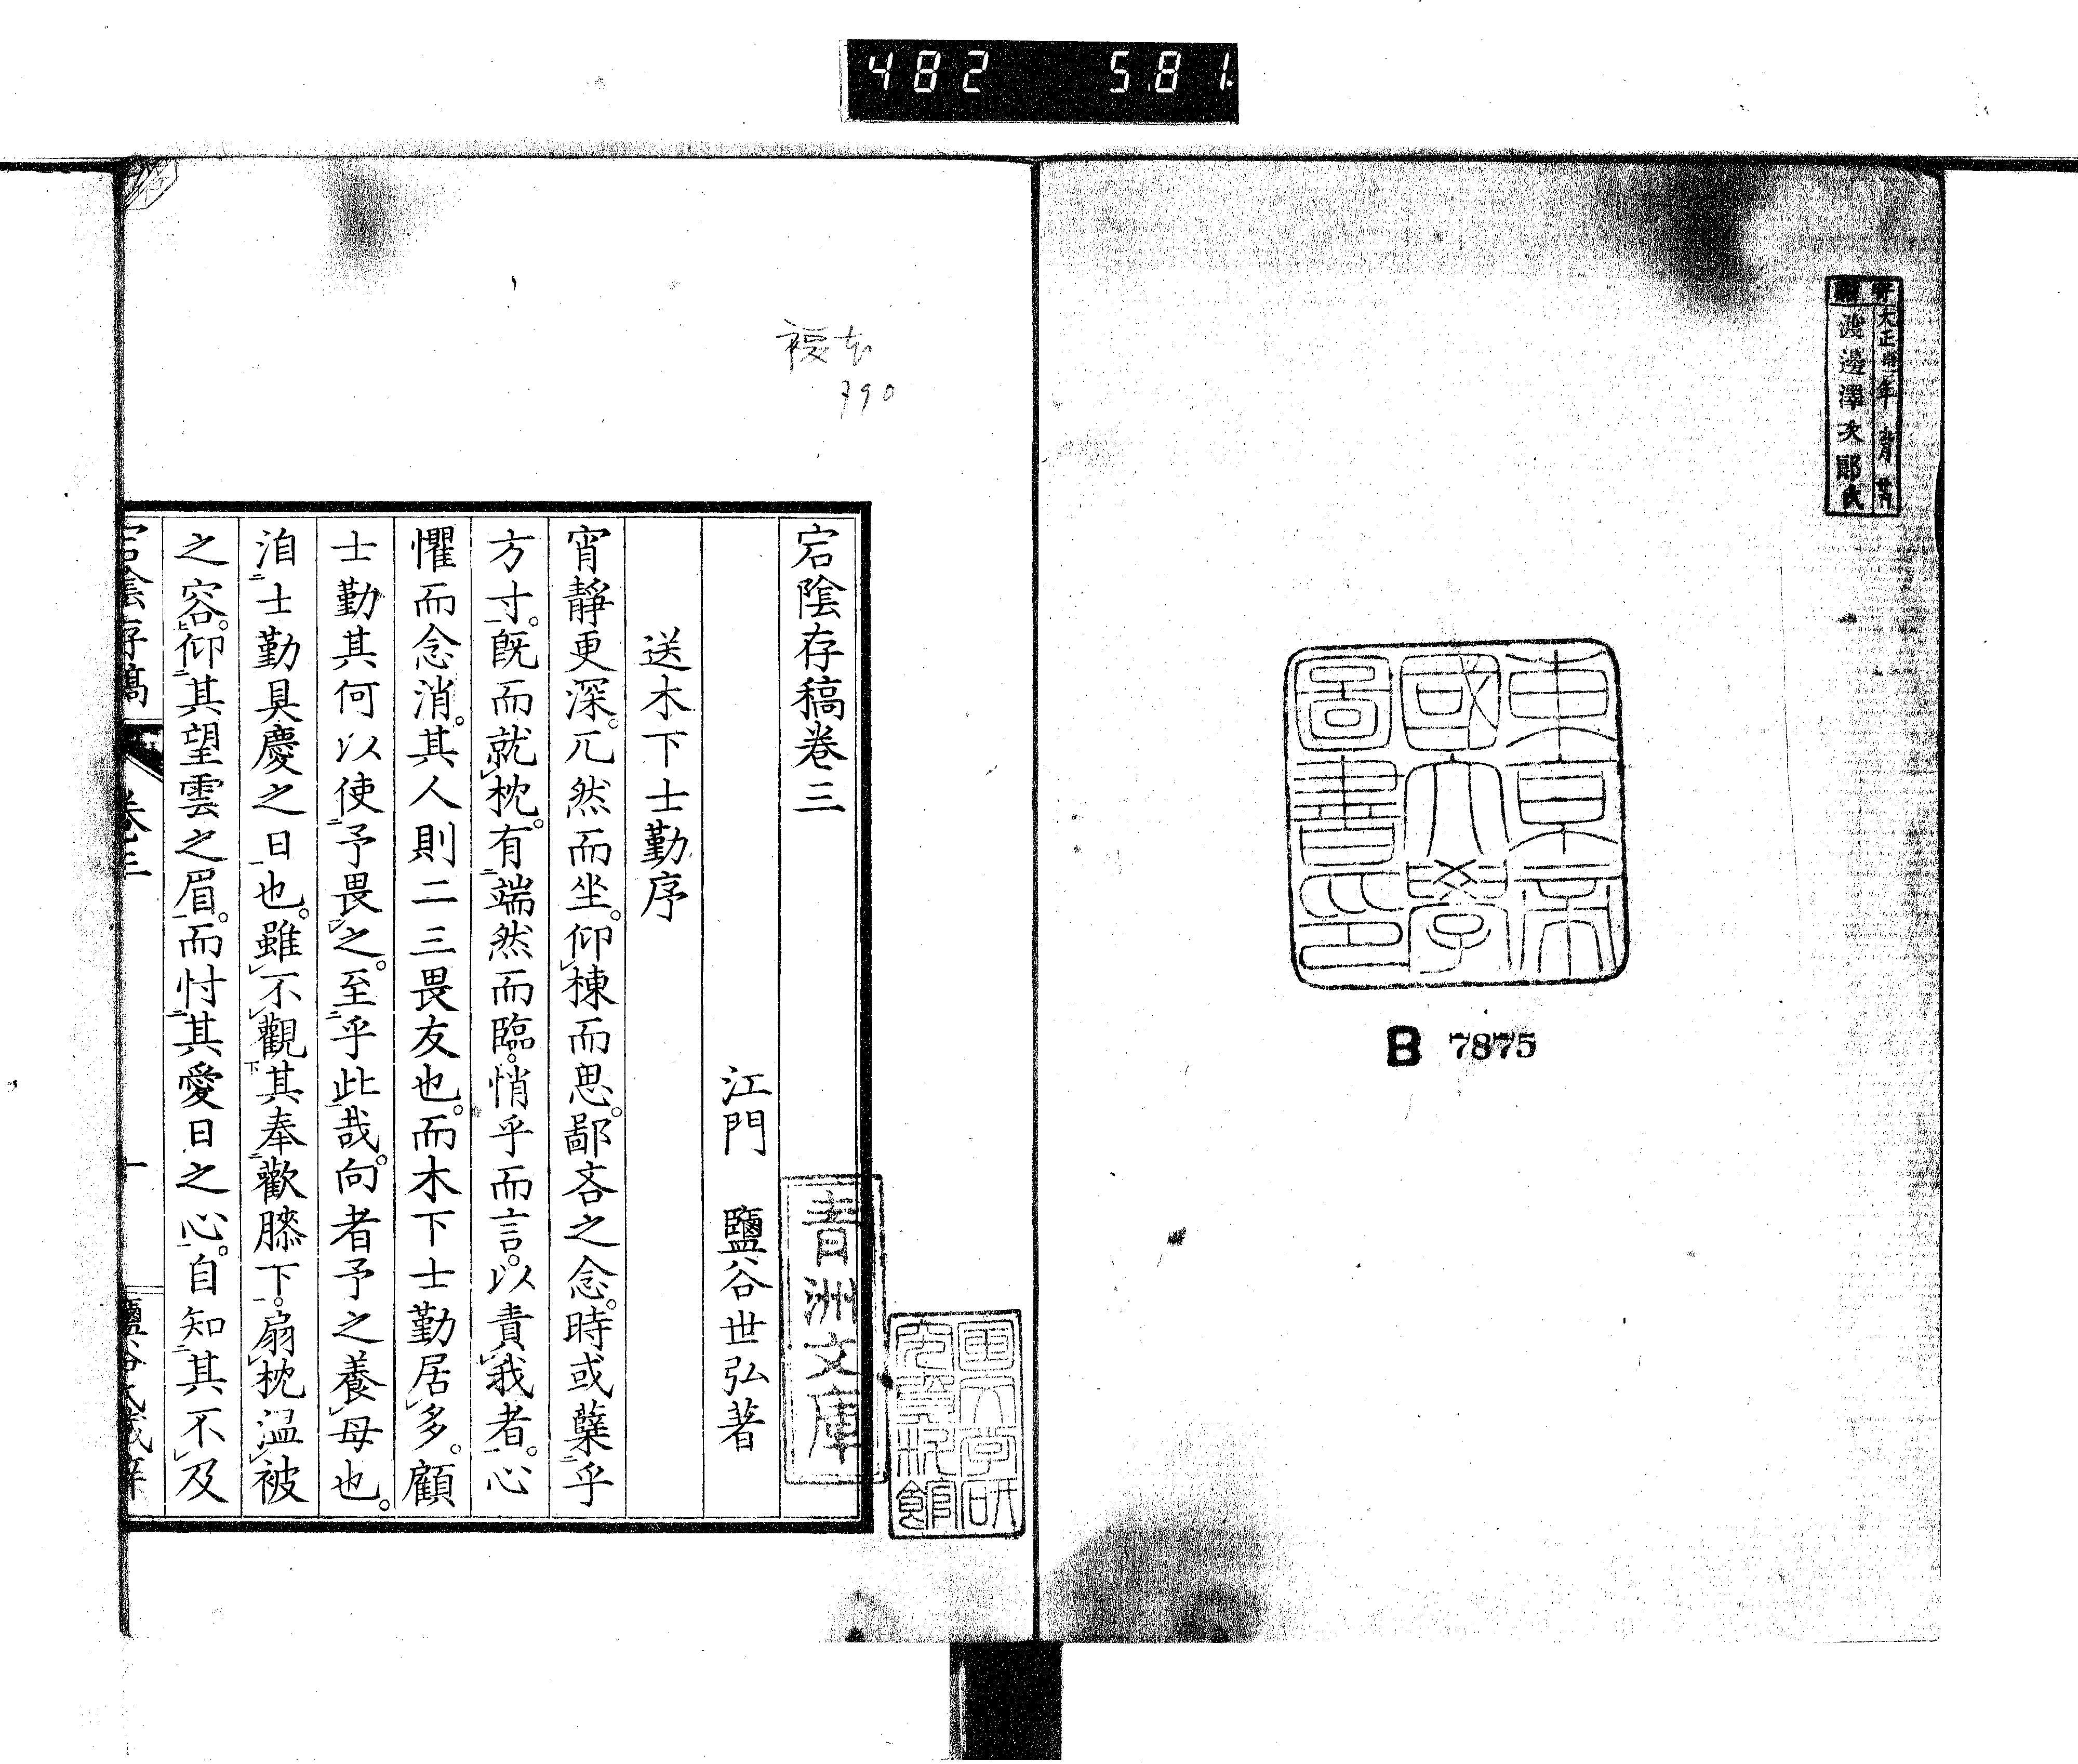 482 581
寄贈
大正 年 月
渡邊澤次郎氏
東京帝
國大學
圖書印
B 7875
複本
790
宕陰存稿卷三
江門 鹽谷世弘著
送木下士勤序
宵靜更深。兀然而坐。仰棟而思。鄙吝之念。時或蘗乎
方寸。既而就枕。有端然而臨。悄乎而言。以責我者。心
懼而念消。其人則二三畏友也。而木下士勤居多。顧
士勤其何以使予畏之。至乎此哉。向者予之養母也。
洎士勤具慶之日也。雖不觀其奉歡膝下。扇枕溫被
之容。仰其望雲之眉。而忖其愛日之心。自知其不及
宕陰存稿 卷三 一
青洲文庫